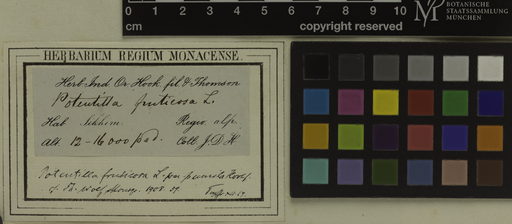 0 1 2 3 4 5 6 7 8 9 10
cm
copyright reserved
BOTANISCHE
STAATSSAMMLUNG
MÜNCHEN
HERBARIUM REGIUM MONACENSE.
Herb. Ind. Or. Hook. fil. & Thomson
Potentilla fruticosa L.
Hab. Sikkim. Regio alp.
Alt. 12-16000 ped. Coll. J. D. H.
Potentilla fruticosa L. var.
Th. Wolf Monogr. 1908. 57.